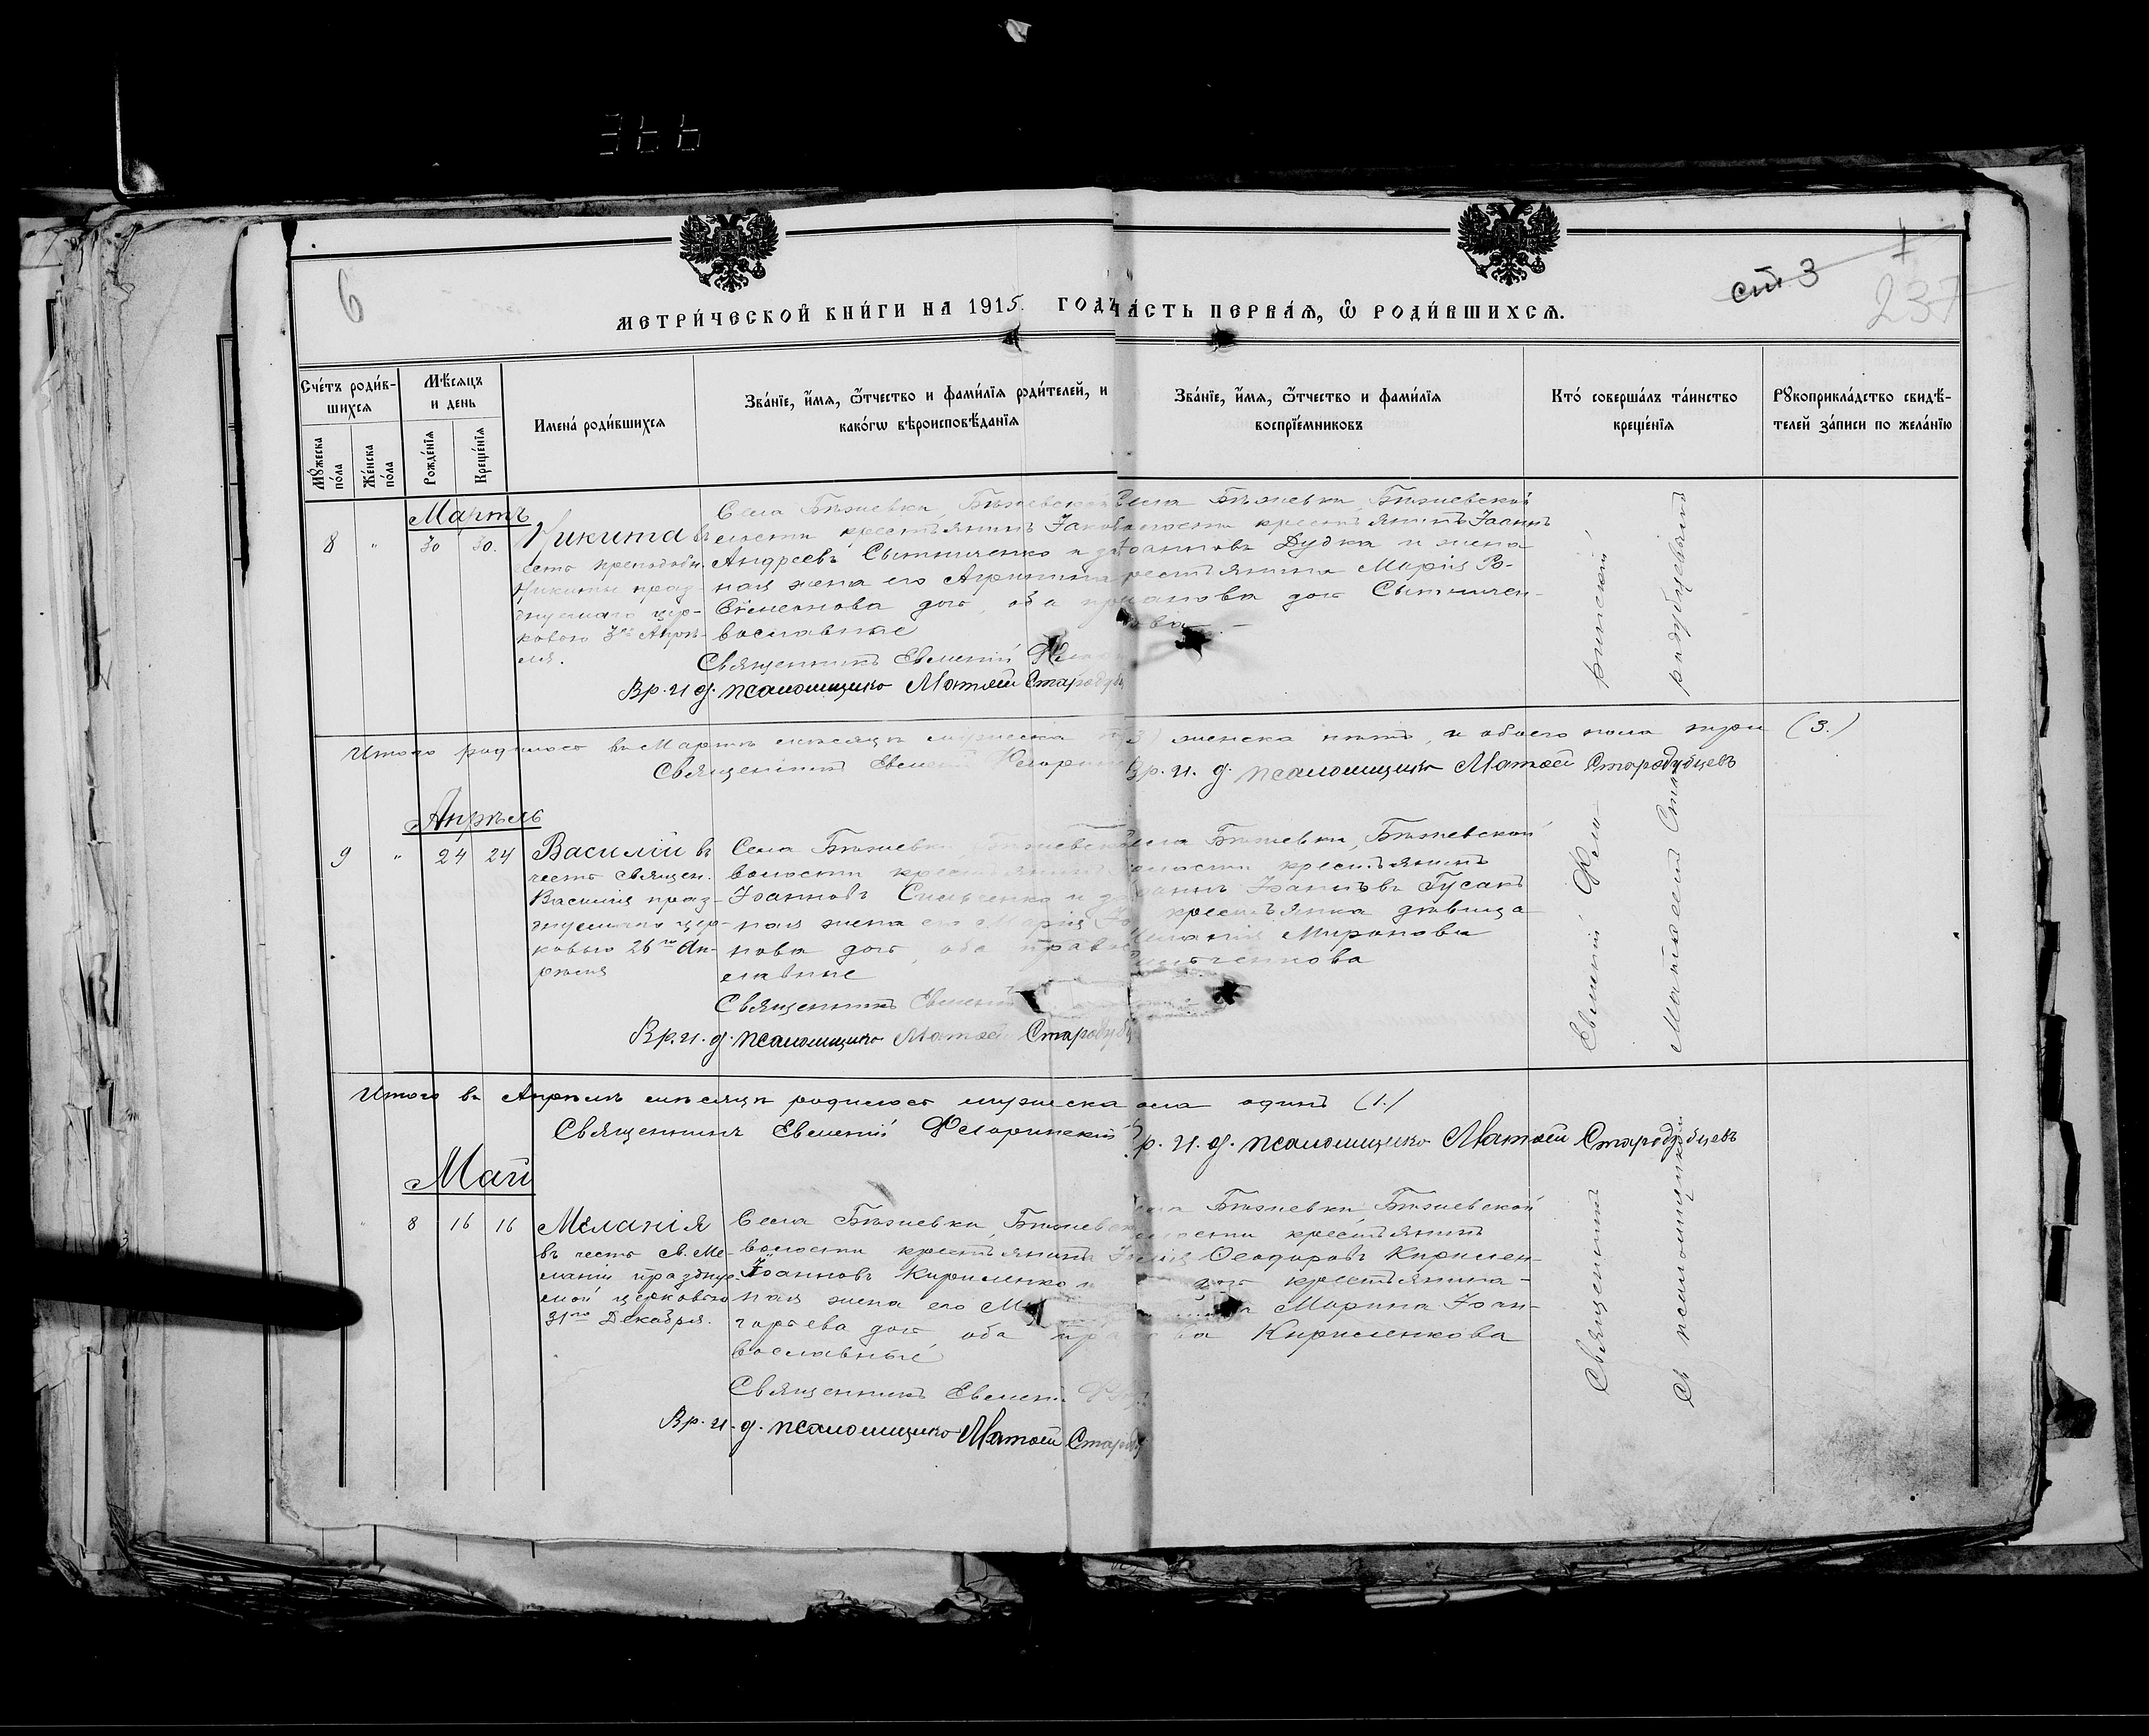 366
6
ст 3
1
237
МЕТРИ́ЧЕСКОЙ КНИ́ГИ НА 1915. ГОДЪ
ЧА́СТЬ ПЕРВА́Ѧ, Ѡ РОДИ́ВШИХСѦ.
Сче́тъ роди́в-
шихсѧ
Мꙋ́жеска по́ла
Же́нска по́ла
Мѣ́сѧцъ
и день
Рожде́нїѧ
Креще́нїѧ
Имена́ роди́вшихсѧ
Зва́нїе, и҆́мѧ, ѻ҆́тчество и фами́лїѧ роди́телей, и
како́гѡ вѣроисповѣ́данїѧ
Зва́нїе, и҆́мѧ, ѻ҆́тчество и фами́лїѧ
воспрїе́мниковъ
Кто́ соверша́лъ та́инство
креще́нїѧ
Рꙋкоприкла́дство свидѣ́-
телей за́писи по жела́нїю
Мартъ
8 " 30 30.
Никита въ
честь преподобн.
Никиты праз-
днуемаго цер-
ковью 3го Апрѣ-
ля.
Села Бѣжевки, Бѣжевской
волости крестьянинъ Іаковъ
Андреевъ Сытниченко и за
ная жена его Агрипина
Симеонова дочь, оба пра
вославные
Священникъ Евменій
Вр. и д. псаломщика Матѳей Стародубц
Села Бѣжевки, Бѣжевской
волости крестьянинъ Іоаннъ
Іоанновъ Дудка и жена
крестьянина Марія Ро-
манова дочь Сытничен-
кова
ринскій
родубцевымъ
Итого родилось въ Мартѣ мѣсяцѣ мужеска (3) женска нѣтъ, а обоего пола три (3.)
Священникъ Евменій
Вр. и. д. псаломщика Матѳей Стародубцевъ
Апрѣль
9 " 24 24
Василій въ
честь священ.
Василія праз-
днуемаго цер-
ковью 26го Ап-
рѣля
Села Бѣжевки, Бѣжевской
волости крестьянинъ
Іоанновъ Сильченко и за
ная жена его Марія Іо
нова дочь, оба право
славные
Священникъ Евменій
Вр. и. д. псаломщика Матѳей Стародубц
Села Бѣжевки, Бѣжевской
волости крестьянинъ
Іоаннъ Іоанновъ Гусакъ
и крестьянка дѣвица
Меланія Миронова
Сильченкова
Евменій Фло-
Матѳеемъ Ста-
Итого въ Апрѣлѣ мѣсяцѣ родилось мужеска пола одинъ (1.)
Священникъ Евменій Флоринскій
Вр. и. д. псаломщика Матѳей Стародубцевъ
Май
" 8 16 16
Меланія
въ честь св. Ме-
ланіи праздну-
емой церковью
31го Декабря.
Села Бѣжевки, Бѣжевской
волости крестьянинъ
Іоанновъ Кириленко и
ная жена его
горьева дочь оба пра
вославные
Священникъ Евменій
Вр. и. д. псаломщика Матѳей Стародуб
Села Бѣжевки Бѣжевской
волости крестьянинъ
Ѳеодоровъ Кирилен-
крестьянина
Марина Іоан-
нова Кириленкова
Священникъ
Съ псаломщикомъ